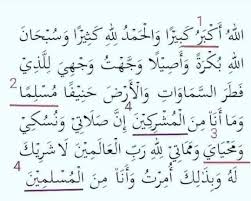 1
اللهُ أَكْبَرُ كَبِيرًا وَالْحَمْدُ لِلهِ كَثِيرًا وَسُبْحَانَ
اللهِ بُكْرَةً وَأَصِيلًا وَجَّهْتُ وَجْهِيَ لِلَّذِي
فَطَرَ السَّمَاوَاتِ وَالْأَرْضَ حَنِيفًا مُسْلِمًا 2
وَمَا أَنَا مِنَ الْمُشْرِكِيْنَ إِنَّ صَلَاتِي وَنُسُكِيْ
3 4
وَمَحْيَايَ وَمَمَاتِي لِلهِ رَبِّ الْعَالَمِيْنَ لَا شَرِيْكَ
لَهُ وَبِذَلِكَ أُمِرْتُ وَأَنَا مِنَ الْمُسْلِمِيْنَ 4